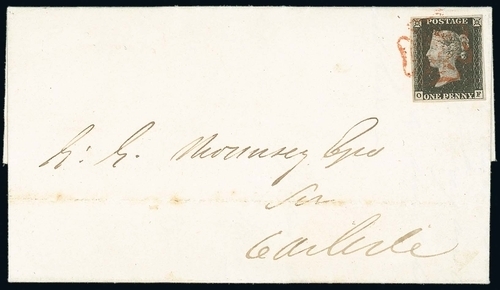 POSTAGE
O ONE PENNY F
Mounsey Esqr
Carlisle